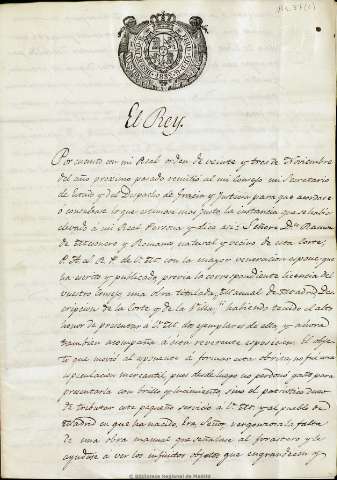 El Rey.
Por cuanto con mi Real orden de veinte y tres de Noviembre
del año proximo pasado remitió al mi Consejo mi Secretario
de Estado y del Despacho de Gracia y Justicia para que acordase
ó consultase lo que estimase mas justo, la instancia que se habia
elevado á mi Real Persona y dice asi: Señor: Dn. Ramon
de Mesonero y Romano natural y vecino de esta Corte,
P. A. L. R. P. de V. M. con la mayor veneracion expone que
ha escrito y publicado previa la correspondiente licencia del
vuestro Consejo una obra titulada, Manual de Madrid, Des-
cripcion de la Corte y de la Villa, habiendo tenido el alto
honor de presentar á V. M. dos ejemplares de ella, y ahora
tambien acompaña á esta reverente exposicion. El obje-
to que movió al exponente á formar esta obrita, no fue una
especulacion mercantil, pues desde luego no perdonó gasto para
presentarla con brillo y lucimiento, sino el patriotico deseo
de tributar este pequeño servicio á V. M. y al pueblo de
Madrid en que ha nacido. Era Señor, vergonzosa la falta
de una obra manual que señalase al forastero y le
ayudase á ver los infinitos objetos que engrandecen y
© Biblioteca Regional de Madrid